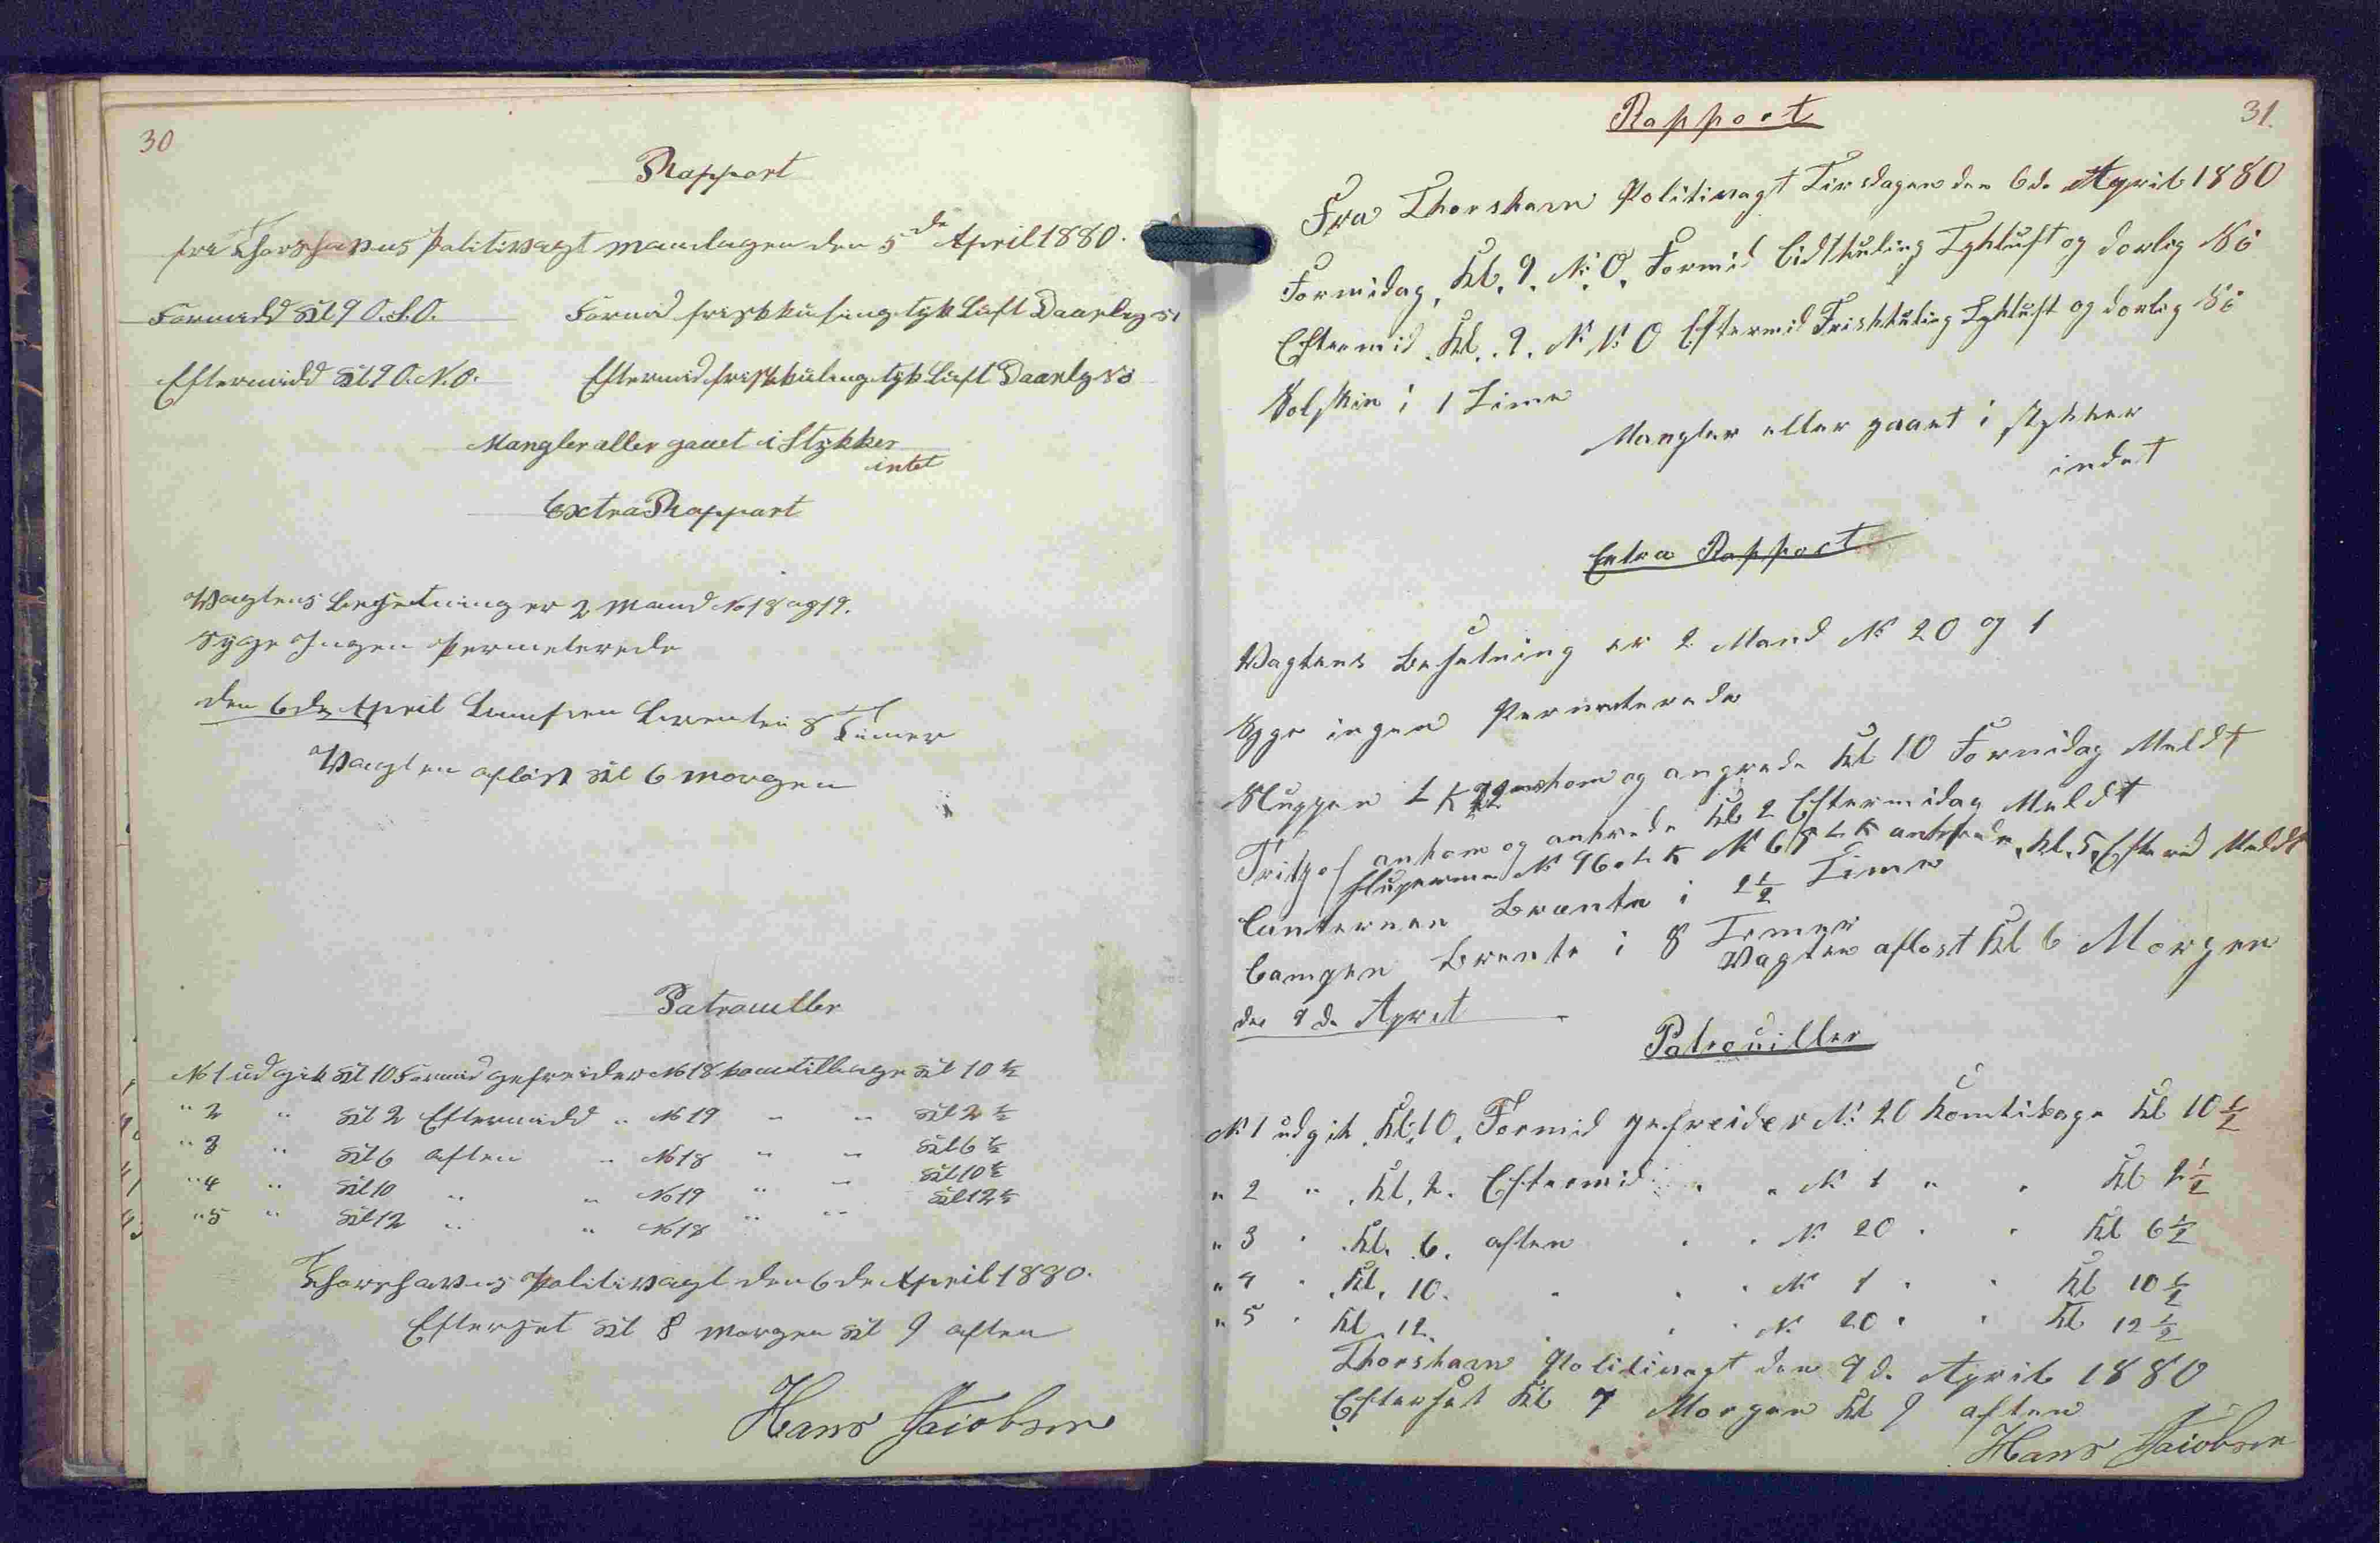 30
Rapport
fra Thorshavns Politivagt Mandagen den 5de April 1880.
Formidd Kl 9 O.S.O. Formid friskkuling tyk Luft Daarlig Sö
Eftermidd Kl 9 O.N.O. Eftermid friskkuling tyk Luft Daarlig Sö
Mangler eller gaaet i Stykker
intet
Extra Rapport
Vagtens Besetning er 2 Mand No 18 og 19.
Syge Ingen Permeterede
den 6de April Lampen brenten 8 Timer
Vagten aflöst Kl 6 morgen
Patrouller
No 1 udgik Kl 10 Formid gefreider No 18 kom tilbage Kl 10 ½
" 2 " Kl 2 Eftermidd " No 19 " " Kl 2 ½
" 3 " Kl 6 aften " No 18 " " Kl 6 ½
" 4 " Kl 10 " " No 19 " " Kl 10 ½
" 5 " Kl 12 " " No 18 " " Kl 12 ½
Thorshavns Politivagt den 6de April 1880.
Efterset Kl 8 morgen Kl 9 aften
Hans Jaiobsen
31.
Rapport
Fra Thorshavn Politivagt Tirsdagen den 6de April 1880
Formidag, Kl. 9. N. O. Formid Lidtkuling Tykluft og dorlig Sö
Eftermid. Kl. 9. N N. O Eftermid Friskkuling Tykluft og dorlig Sö
Solskin i 1 Time
Mangler eller gaaet i stykker
indet
Extra Rapport
Vagtens Besetning er 2 Mand No 20 og 1
Syge ingen Permeterede
Sluppen L K ankom og angrede Kl 10 Formidag Meldt
Tritjof ankom og ankrede Kl 2 Eftermidag Meldt
Sluperne No 96 L K No 65 L K ankrede Kl. 5 Meldt
Lanternen Brænte i 2½ Time
Lampen Brente i 8 Temer
Vagten aflost Kl 6 Morgen
de 7 de Apret
Patrouiller
No 1 udgik Kl. 10. Formid gefreider No 20 Komtibage Kl 10 ½
" 2 " Kl. 2. Eftermid " " No 1 " " Kl 2½
" 3 " Kl. 6. aften " " No 20 " " Kl 6½
" 4 " Kl. 10. " " " No 1 " " Kl 10 ½
" 5 " Kl. 12. " " " No 20 " " Kl 12 ½
Thorshavn Politivagt den 7 d. April 1880
Efterset Kl 7 Morgen Kl 9 aften
Hans Jaiobsen